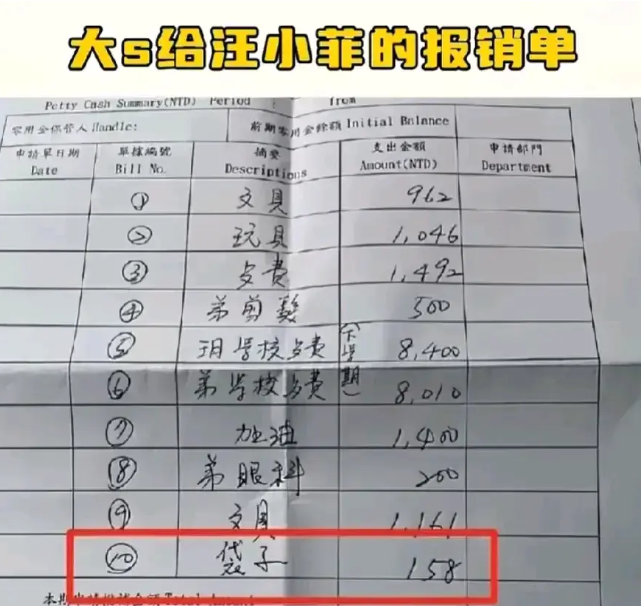 大s给汪小菲的报销单
Petty Cash Summary(NTD) Period : from
零用金保管人Handle: 前期零用金餘額 Initial Balance
申請單日期 單據編號 摘要 支出金額 申請部門
Date Bill No. Descriptions Amount(NTD) Department
① 文具 962
② 玩具 1,046
③ 餐費 1,492
④ 弟剪髮 500
⑤ 玥學校餐費(下學期) 8,400
⑥ 弟學校餐費 8,010
⑦ 加油 1,400
⑧ 弟眼科 200
⑨ 文具 1,161
⑩ 袋子 158
本期申請報銷金額Total Amount